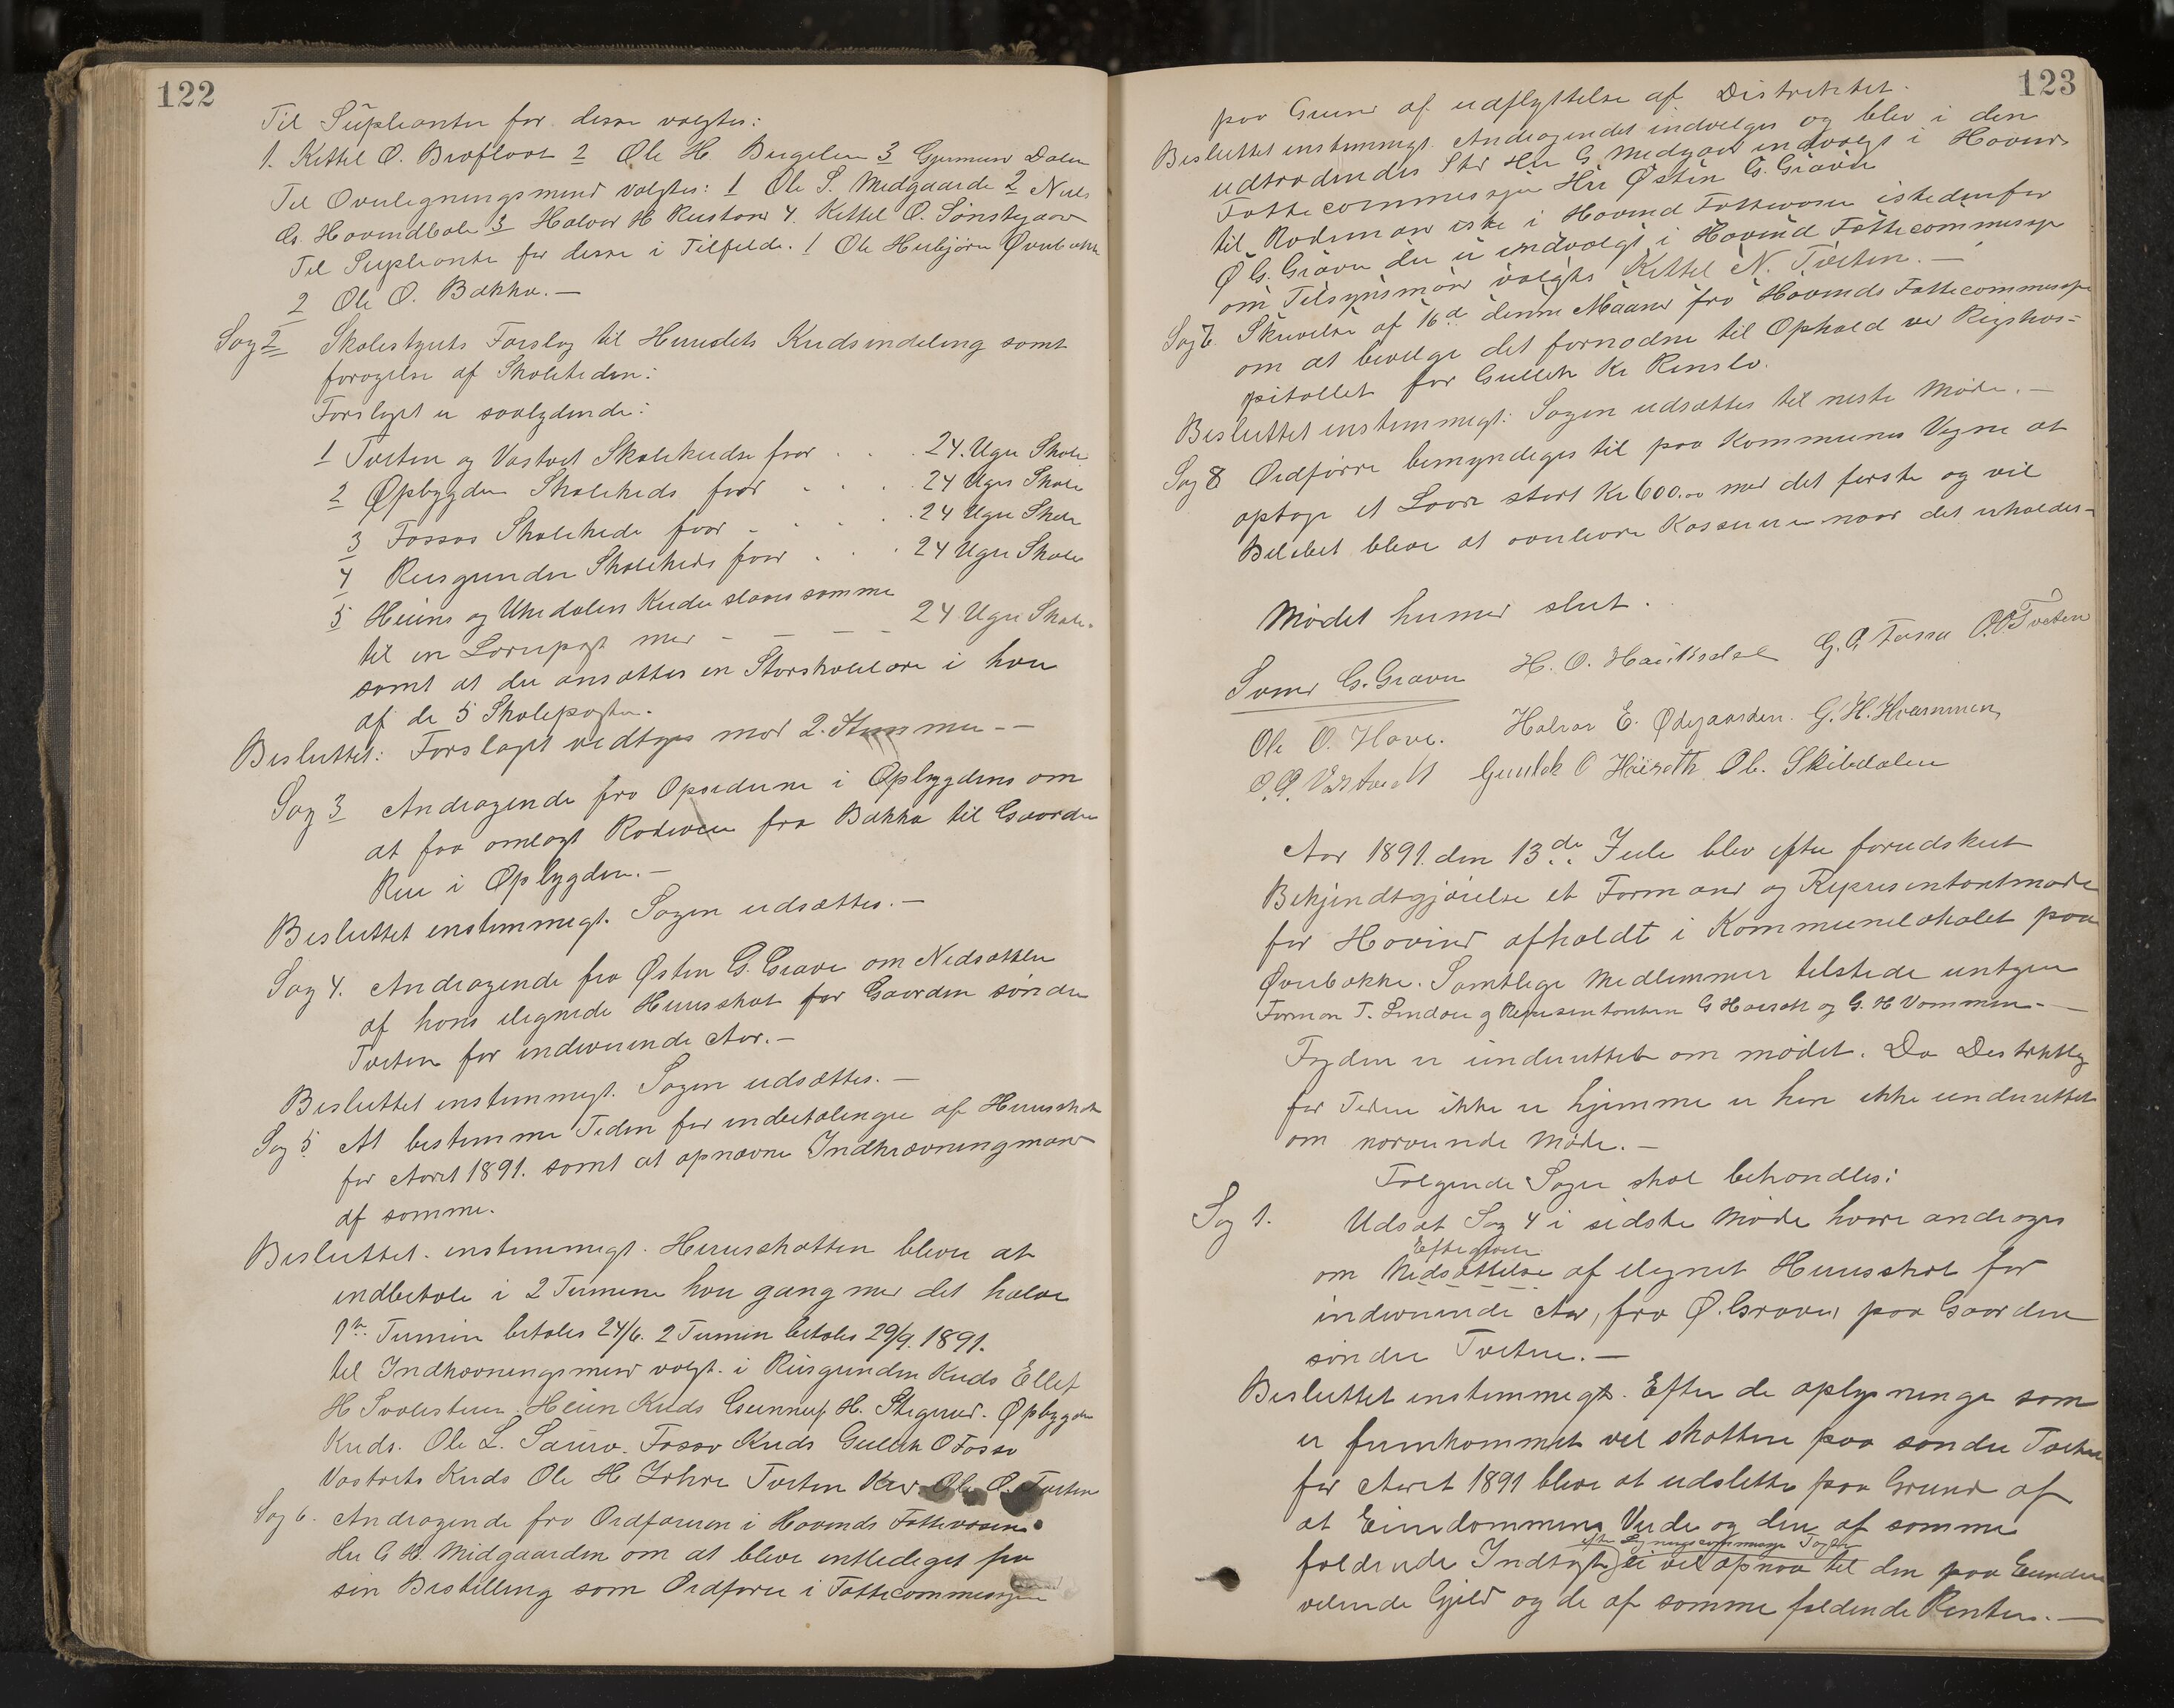 122
Til Supleanter for disse valgtes:
1. Kittil O. Brofloat 2 Ole H. Bugelen 3 Gjermun Dalen
Til Overlegningsmend valgtes: 1 Ole S. Midgaarde 2 Nils
G. Hovindbole 3 Halvor H Rustan 4. Kittil O. Sønstegaar
Til Supleanter for disse i Tilfelde. 1 Ole Herbjørn Øvrebekke
2 Ole O. Bækka. —
Sag 2 Skolestyrets Forslag til Heredets Kredsindeling samt
forøgelse af Skoletiden:
Forslaget er saalydende:
1 Tveten og Vastveit Skolekredse faar . . . 24. Uger Skole
2 Øpbygden Skolekreds faar . . . 24 Uger Skole
3 Fossos Skolekreds faar - . . . 24 Uger Skole
4 Rusgrenden Skolekreds faar . . . 24 Uger Skole
5 Heiens og Uhredalens Kredse slaaes samme
til en Lærerpost med - — — - 24 Uger Skole.
samt at der ansættes en Storskolelærer i hver
af de 5 Skoleposter.
Besluttet: Forslaget vedtages mod 2. Stemmer - —
Sag 3 Andragende fra Opsiderne i Øpbygdens om
at faa omlagt Rodeveien fra Bækka til Gaarden
Rue i Øpbygden. —
Besluttet enstemmigt. Sagen udsættes. —
Sag 4. Andragende fra Østen G. Grave om Nedsættelse
af hans ilignede Heredsskat for Gaarden søndre
Tveten for indeværende Aar. —
Besluttet enstemmigt. Sagen udsættes. —
Sag 5. At bestemme Tiden for indbetalingen af Heredsskat
for Aaret 1891. samt at opnævne Indkrævningsmænd
af samme.
Besluttet. enstemmigt. Heredsskatten bliver at
indbetale i 2 Terminer hver gang med det halve
1ste Termin betales 24/6. 2 Termin betales 29/9. 1891.
til Indkrævningsmend valgt. i Rusgrenden Kreds Ellef
H Svalestuen. Heien Kreds Gunnuf H. Stegerud. Øpbygden
Kreds. Ole L. Sauro. Fosso Kreds Gullek O Fosso
Vastveits Kreds Ole H Tveten Kreds Ole O. Tveten
Sag 6. Andragende fra Ordføreren i Hovinds Fattevæsen
Hr G H. Midgaarden om at blive entlediget fra
sin Bestilling som Ordfører i Fattecommissjon
123
paa Grund af udflyttelse af Distriktet.
Besluttet enstemmigt. Andragendet indvilges og blev i den
udtrædendes Sted Hr G Midgaar indvalgt i Hovinds
Fattecommissjon Hr Østen G. Graver
til Rodemann iste i Hovind Fattevæsen istedenfor
Ø G. Graver der er indvalgt i Hovind Fattecommissjon
om Tilsynsman valgtes Kittil N. Tveten. —
Sag 7. Skrivelse af 16de denne Maaned fra Hovinds Fattecommissjon
om at bevilge det fornødne til Ophold ved Rigshos=
pitallet for Gullek Kr Renslo.
Besluttet enstemmigt: Sagen udsættes til neste Møde. —
Sag 8 Ordfører bemyndiges til paa Kommunens Vegne at
optage et Laan stort Kr 600.00 med det første og vil
Beløbet blive at overlevere Kassereren naar det erholdes -
Mødet hermed slut.
Svend G. Graver H. O. Haukisdal G. O. Fosso O. O. Tveten
Ole O. Hove. Halvor E. Ødegaarden. G. H. Kvammen,
O. O. Vastveit Gunlek O Haiseth Ol. Skibdalen
Aar 1891. den 13de Jule blev efter forudskeet
Bekjendtgjørelse et Formand og Representantmøde
for Hovind afholdt i Kommunelokalet paa
Øverbøkke. Samtlige Medlemmer tilstede untagen
Forman T. Lindaae og Representanten G Haiseth og G. H Vammen. —
Fogden er underrettet om mødet. Da Distriktslæg
for Tiden ikke er hjemme er han ikke underrettet
om nærværende Møde. —
Følgende Sager skal behandles:
Sag 1. Udsat Sag 4 i sidste Møde hvori andrages
Eftergivelse
om Nedsættelse af ilignet Heredsskat for
indeværende Aar, fra Ø. Graver paa Gaarden
søndre Tveten. —
Besluttet enstemmigt. Efter de oplysninger som
er fremkommet vil skatten paa søndre Tveten
for Aaret 1891 blive at udslette paa Grund af
at Eiendommens Verdi og den af samme
efter Ligningscommissjons Taxter
faldende Indtægt ei vil opnaa til den paa Eiendommen
vilende Gjeld og de af samme faldende Renter. —